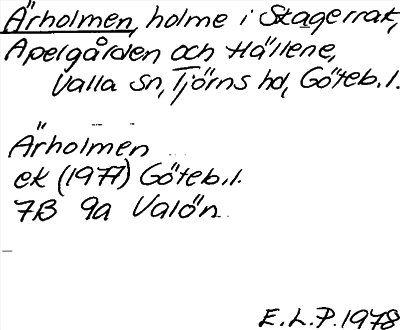 Ärholmen, holme i Skagerrak,
Apelgården och Hällene,
Valla sn, Tjörns hd, Göteb. l.
Ärholmen
ek (1977) Göteb. l.
7B 9a Valön
E. L. P. 1978